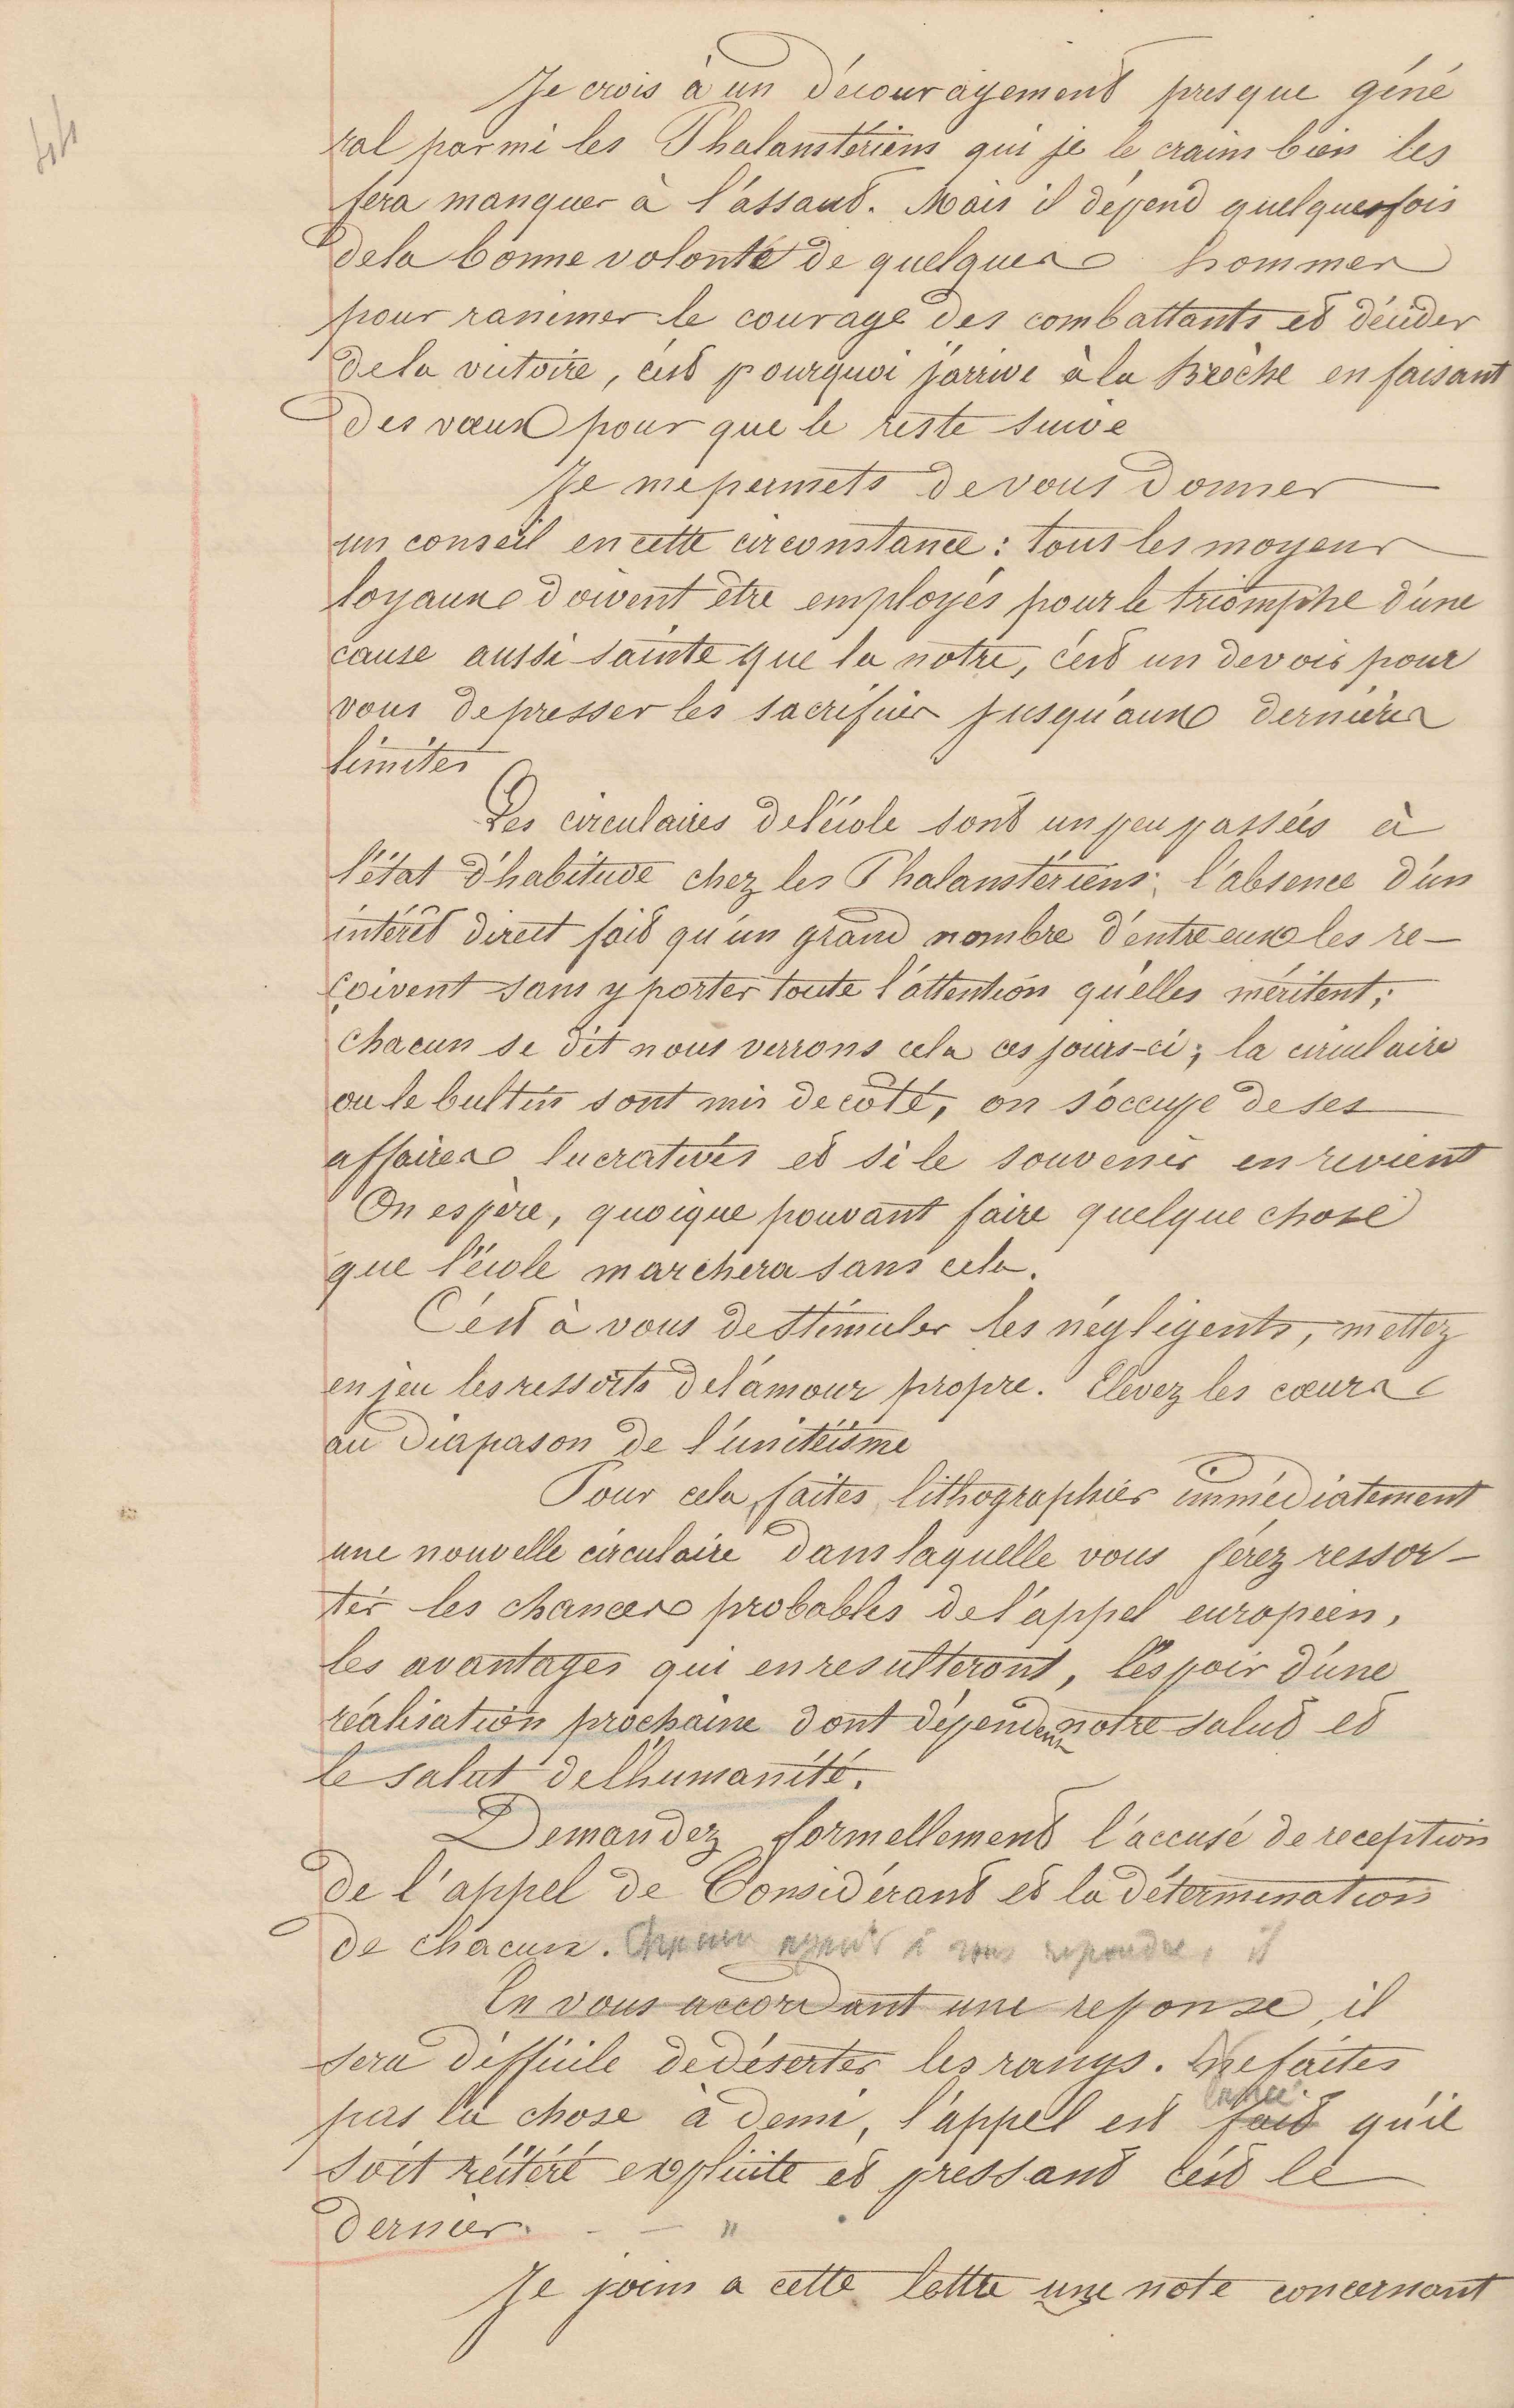 Je crois à un découragement presque géné
ral parmi les Phalanstériens qui je le crains bien les
fera manquer à l'assaut. Mais il dépend quelques fois
de la bonne volonté de quelques hommes
pour ranimer le courage des combattants et décider
de la victoire, c'est pourquoi j'arrive à la Brèche en faisant
des vœux pour que le reste suive
Je me permets de vous donner
un conseil en cette circonstance : tous les moyens
loyaux doivent être employés pour le triomphe d'une
cause aussi sainte que la notre, c'est un devoir pour
vous de presser les sacrifices jusqu'aux dernières
limites
Les circulaires de l'école sont un peu passées à
l'état d'habitude chez les Phalanstériens; l'absence d'un
intérêt direct fait qu'un grand nombre d'entre eux les re-
çoivent sans y porter toute l'attention qu'elles méritent;
chacun se dit nous verrons cela ces jours-ci; la circulaire
ou le bultin sont mis de côté, on s'occupe de ses
affaires lucratives et si le souvenir en revient
On espère, quoique pouvant faire quelque chose
que l'école marchera sans cela.
C'est à vous de stimuler les négligents, mettez
en jeu les ressorts de l'amour propre. Elevez les cœurs
au diapason de l'unitéisme
Pour cela, faites lithographier immédiatement
une nouvelle circulaire dans laquelle vous ferez ressor-
tir les chances probables de l'appel européen,
les avantages qui en resulteront, l'espoir d'une
réalisation prochaine dont dépendent notre salut et
le salut de l'humanité.
Demandez formellement l'accusé de reception
de l'appel de Considérant et la détermination
de chacun. Chacun ayant à vous repondre, il
En vous accordant une reponse, il
sera difficile de déserter les rangs. Ne faites
pas la chose à demi, l'appel est fait qu'il
lancé
soit réitéré explicite et pressant c'est le
dernier. - - "
Je joins a cette lettre une note concernant